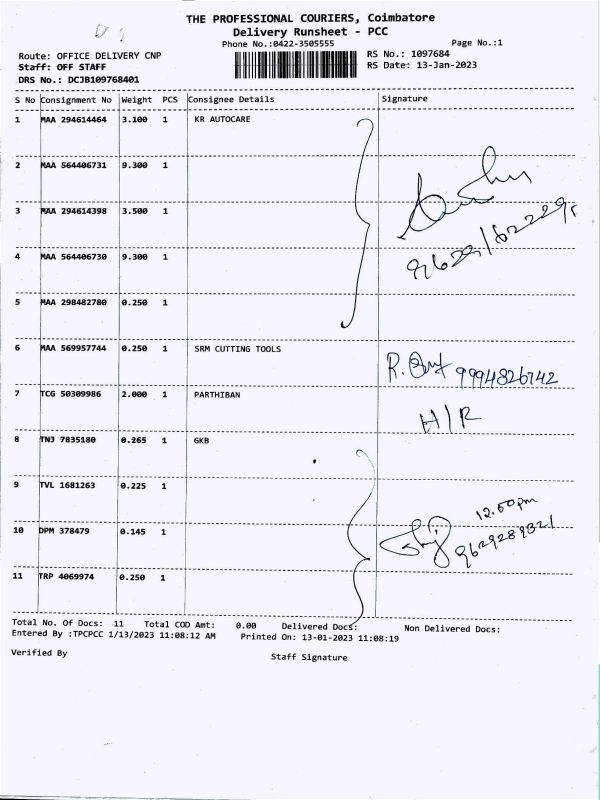 THE PROFESSIONAL COURIERS, Coimbatore
Delivery Runsheet - PCC
Phone No.:0422-3505555 Page No.:1
Route: OFFICE DELIVERY CNP RS No.: 1097684
Staff: OFF STAFF RS Date: 13-Jan-2023
DRS No.: DCJB109768401
S No Consignment No Weight PCS Consignee Details Signature
1 MAA 294614464 3.100 1 KR AUTOCARE
2 MAA 564406731 9.300 1
3 MAA 294614398 3.500 1
4 MAA 564406730 9.300 1
5 MAA 298482780 0.250 1
6 MAA 569957744 0.250 1 SRM CUTTING TOOLS 9994826742
7 TCG 50309986 2.000 1 PARTHIBAN H/R
8 TNJ 7835180 0.265 1 GKB
9 TVL 1681263 0.225 1
12.50pm
10 DPM 378479 0.145 1 9629289321
11 TRP 4069974 0.250 1
Total No. Of Docs: 11 Total COD Amt: 0.00 Delivered Docs: Non Delivered Docs:
Entered By :TPCPCC 1/13/2023 11:08:12 AM Printed On: 13-01-2023 11:08:19
Verified By Staff Signature